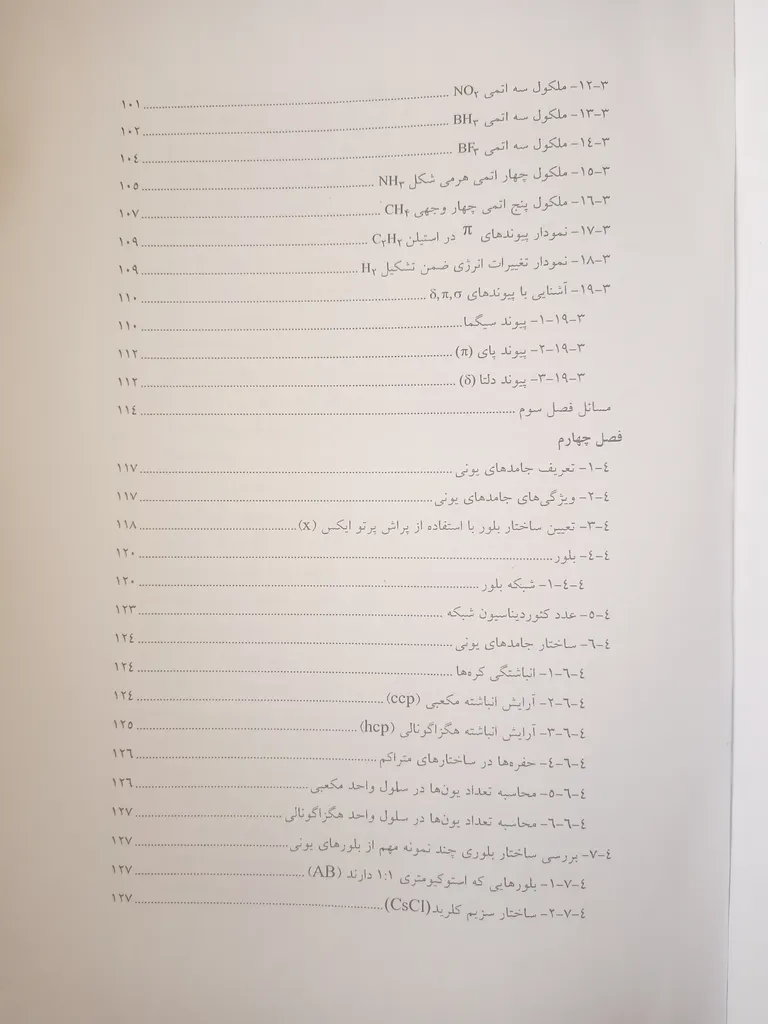 ۳-۱۲- ملکول سه اتمی NO۲ ........ ۱۰۱
۳-۱۳- ملکول سه اتمی BH۳ ........ ۱۰۲
۳-۱٤- ملکول سه اتمی BF۳ ........ ۱۰٤
۳-۱۵- ملکول چهار اتمی هرمی شکل NH۳ ........ ۱۰۵
۳-۱٦- ملکول پنج اتمی چهار وجهی CH۴ ........ ۱۰۷
۳-۱۷- نمودار پیوندهای π در استیلن C۲H۲ ........ ۱۰۹
۳-۱۸- نمودار تغییرات انرژی ضمن تشکیل H۲ ........ ۱۰۹
۳-۱۹- آشنایی با پیوندهای δ,π,σ ........ ۱۱۰
۳-۱۹-۱- پیوند سیگما ........ ۱۱۰
۳-۱۹-۲- پیوند پای (π) ........ ۱۱۲
۳-۱۹-۳- پیوند دلتا (δ) ........ ۱۱۲
مسائل فصل سوم ........ ۱۱٤
فصل چهارم
٤-۱- تعریف جامدهای یونی ........ ۱۱۷
٤-۲- ویژگی‌های جامدهای یونی ........ ۱۱۷
٤-۳- تعیین ساختار بلور با استفاده از پراش پرتو ایکس (x) ........ ۱۱۸
٤-٤- بلور ........ ۱۲۰
٤-٤-۱- شبکه بلور ........ ۱۲۰
٤-۵- عدد کئوردیناسیون شبکه ........ ۱۲۳
٤-٦- ساختار جامدهای یونی ........ ۱۲٤
٤-٦-۱- انباشتگی کره‌ها ........ ۱۲٤
٤-٦-۲- آرایش انباشته مکعبی (ccp) ........ ۱۲٤
٤-٦-۳- آرایش انباشته هگزاگونالی (hcp) ........ ۱۲۵
٤-٦-٤- حفره‌ها در ساختارهای متراکم ........ ۱۲٦
٤-٦-۵- محاسبه تعداد یون‌ها در سلول واحد مکعبی ........ ۱۲٦
٤-٦-٦- محاسبه تعداد یون‌ها در سلول واحد هگزاگونالی ........ ۱۲۷
٤-۷- بررسی ساختار بلوری چند نمونه مهم از بلورهای یونی ........ ۱۲۷
٤-۷-۱- بلورهایی که استوکیومتری ۱:۱ دارند (AB) ........ ۱۲۷
٤-۷-۲- ساختار سزیم کلرید(CsCl) ........ ۱۲۷